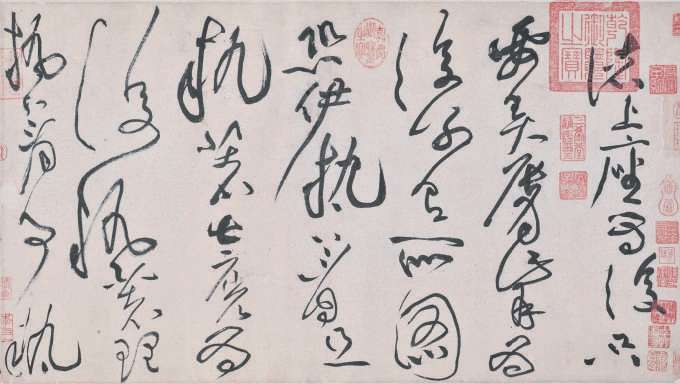 諸上座為復只
要弄唇觜為
復別有所圖
恐伊執著且
執著甚麼為
復執著理
執著事執